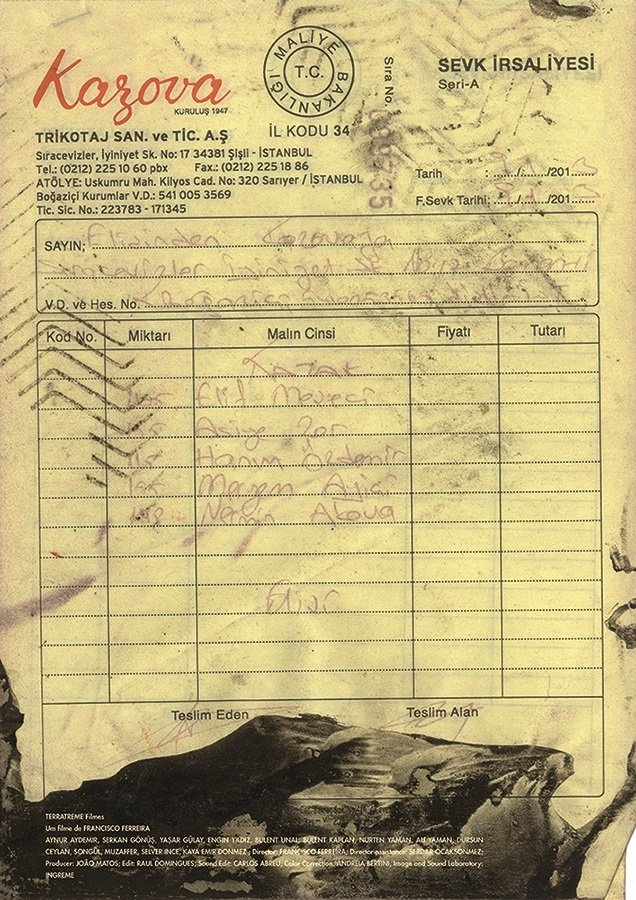 Kazova
KURULUŞ 1947
MALİYE BAKANLIĞI
T.C.
İL KODU 34
Sıra No.
SEVK İRSALİYESİ
Seri-A
TRİKOTAJ SAN. ve TİC. A.Ş
Sıracevizler, İyiniyet Sk. No: 17 34381 Şişli - İSTANBUL
Tel.: (0212) 225 10 60 pbx Fax.: (0212) 225 18 86
ATÖLYE: Uskumru Mah. Kilyos Cad. No: 320 Sarıyer / İSTANBUL
Boğaziçi Kurumlar V.D.: 541 005 3569
Tic. Sic. No.: 223783 - 171345
Tarih : ....../....../201......
F.Sevk Tarihi: ....../....../201......
SAYIN; Elisinden Kazova'ya
V.D. ve Hes. No.
Kod No. Miktarı Malın Cinsi Fiyatı Tutarı
KAZAK
Elif
Asiye
Hanım Özdemir
Meryem
Nermin
Teslim Eden Teslim Alan
TERRATREME Filmes
Um filme de FRANCISCO FERREIRA
AYNUR AYDEMIR, SERKAN GÖNÜŞ, YAŞAR GÜLAY, ENGIN YILDIZ, BULENT UNAL, BULENT KAPLAN, NURTEN YAMAN, ALI YAMAN, DURSUN
CEYLAN, SONGÜL, MUZAFFER, SELVER INCE, KAYA EMIR DONMEZ ; Director: FRANCISCO FERREIRA; Director assistance: SERDAR OCAKSONMEZ;
Producer: JOÃO MATOS; Edit: RAUL DOMINGUES; Sound Edit: CARLOS ABREU, Color Correction: ANDREIA BERTINI, Image and Sound Laboratory:
INGREME